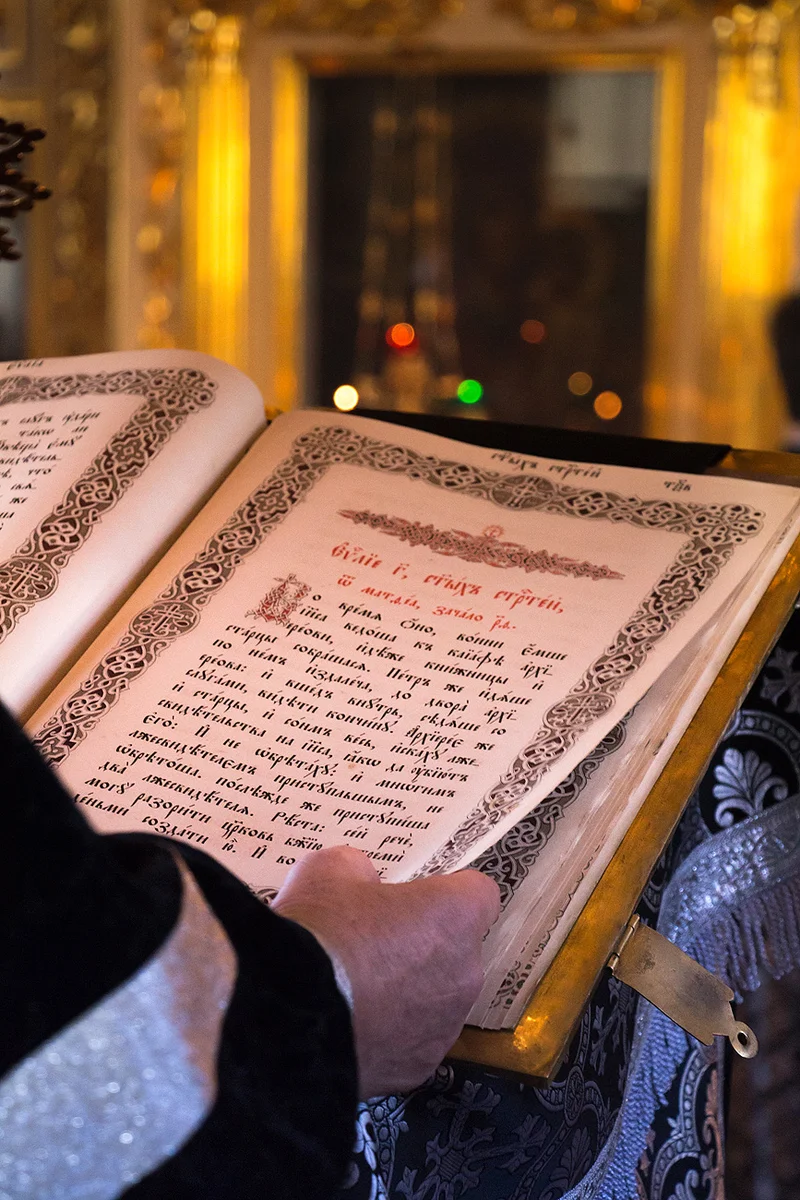 такѡ ли
свидѣтелѧ
что̀
же
ст҃ы́хъ стрⷭ҇те́й
Єѵⷢ҇лїе г҃, ст҃ы́хъ стрⷭ҇те́й,
Ѿ матѳе́а, зача́ло р҃ѳ.
Во вре́мѧ ѻ́но, во́ини є́мше
і҆и҃са ведо́ша къ каїа́фѣ а҆рхї-
ере́ови, и҆дѣ́же кни́жницы и҆
ста́рцы собра́шасѧ. Пе́тръ же и҆дѧ́ше
по не́мъ и҆здале́ча, до двора̀ а҆рхї-
ере́ова: и҆ вше́дъ внꙋ́трь, сѣдѧ́ше со
слꙋга́ми, ви́дѣти кончи́нꙋ. А҆рхїере́є же
и҆ ста́рцы, и҆ со́нмъ ве́сь, и҆ска́хꙋ лже-
свидѣ́тельства на і҆и҃са, ꙗ҆́кѡ да ᲂу҆бїю́тъ
є҆го̀: И҆ не ѡ҆брѣта́хꙋ: и҆ мнѡ́гимъ
лжесвидѣ́телемъ пристꙋ́пльшымъ, не
ѡ҆брѣто́ша. послѣ́жде же пристꙋпи́вша
два̀ лжесвидѣ́телѧ, Рѣ́ста: се́й речѐ,
могꙋ̀ разори́ти цр҃ковь бж҃їю треми́
де́ньми созда́ти ю҆̀. И҆ во